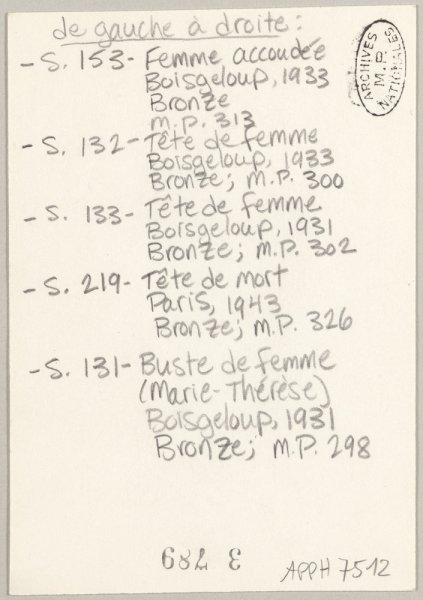 de gauche à droite:
- S. 153 - Femme accoudée
Boisgeloup, 1933
Bronze
m.p. 313
- S. 132 - Tête de femme
Boisgeloup, 1933
Bronze; m.p. 300
- S. 133 - Tête de femme
Boisgeloup, 1931
Bronze; m.p. 302
- S. 219 - Tête de mort
Paris, 1943
Bronze; m.p. 326
- S. 131 - Buste de femme
(Marie-Thérèse)
Boisgeloup, 1931
Bronze; m.p. 298
ARCHIVES
M.P.
NATIONALES
APPH 7512